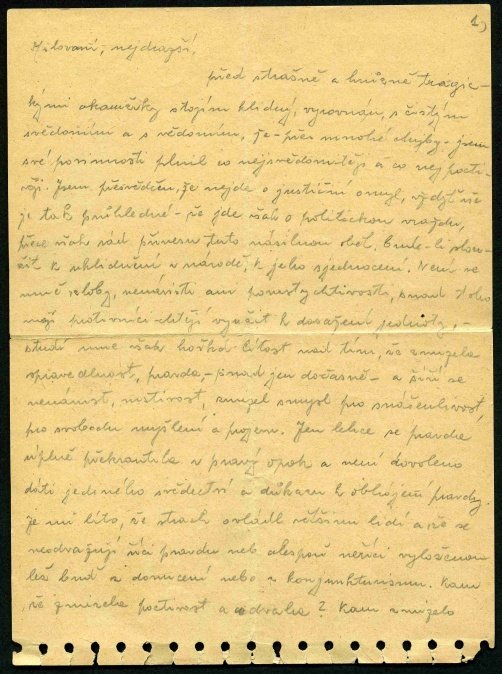 1)
Milovaní, nejdražší,
před strašně a hnusně tragic-
kými okamžiky stojím klidný, vyrovnán, s čistým
svědomím a s vědomím, že - přes mnohé chyby - jsem
své povinnosti plnil co nejsvědomitěji a co nejpocti-
věji. Jsem přesvědčen, že nejde o justiční omyl, vždyť vše
je tak průhledné - že jde však o politickou vraždu,
přece však rád přinesu tuto násilnou oběť, bude-li slou-
žit k uklidnění v národě, k jeho sjednocení. Není ve
mně zloby, nenávisti ani pomstychtivosti, snad toho
moji protivníci chtějí využít k dosažení jednoty, -
studí mne však hořká lítost nad tím, že zmizela
spravedlnost, pravda, - snad jen dočasně - a šíří se
nenávist, mstivost, zmizel smysl pro snášenlivost,
pro svobodu myšlení a projevu. Jen lehce se pravda
úplně překroutila v pravý opak a není dovoleno
dáti jediného svědectví a důkazu k obhájení pravdy.
Je mi líto, že strach ovládl většinu lidí a že se
neodvažují říci pravdu neb alespoň neříci vyloženou
lež buď z donucení nebo z konjunkturismu. Kam
že zmizela poctivost a odvaha? Kam zmizelo